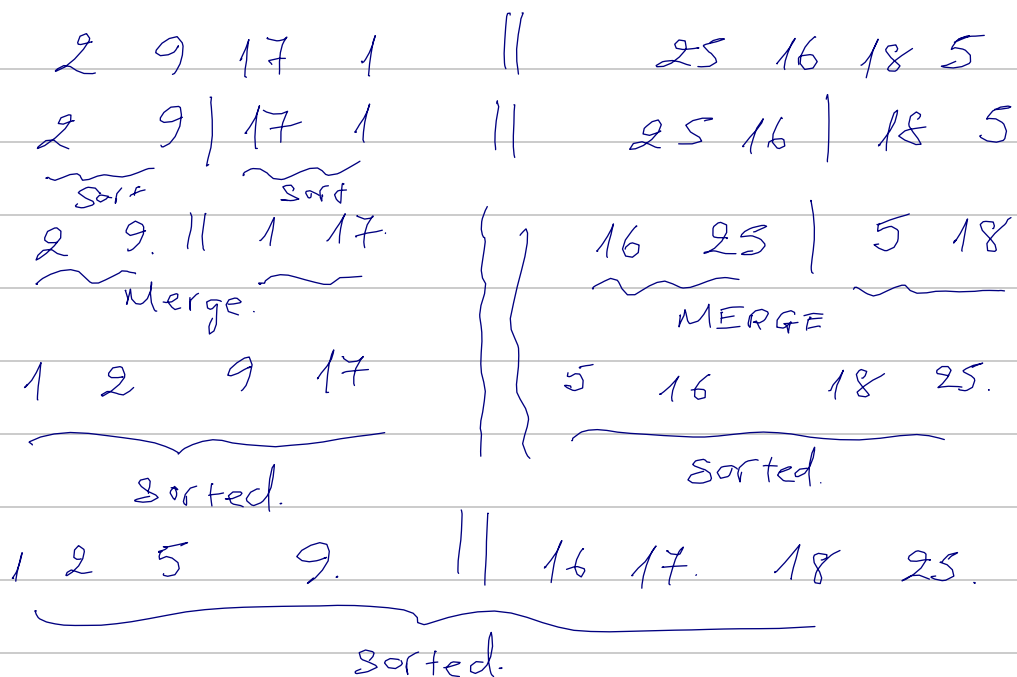 2 9 17 1 || 25 16 18 5
2 9 | 17 1 || 25 16 | 18 5
Sort Sort
2 9. || 1 17. 16 25 | 5 18
Merge. MERGE
1 2 9 17 5 16 18 25.
Sorted. Sorted.
1 2 5 9. || 16 17. 18 25.
Sorted.